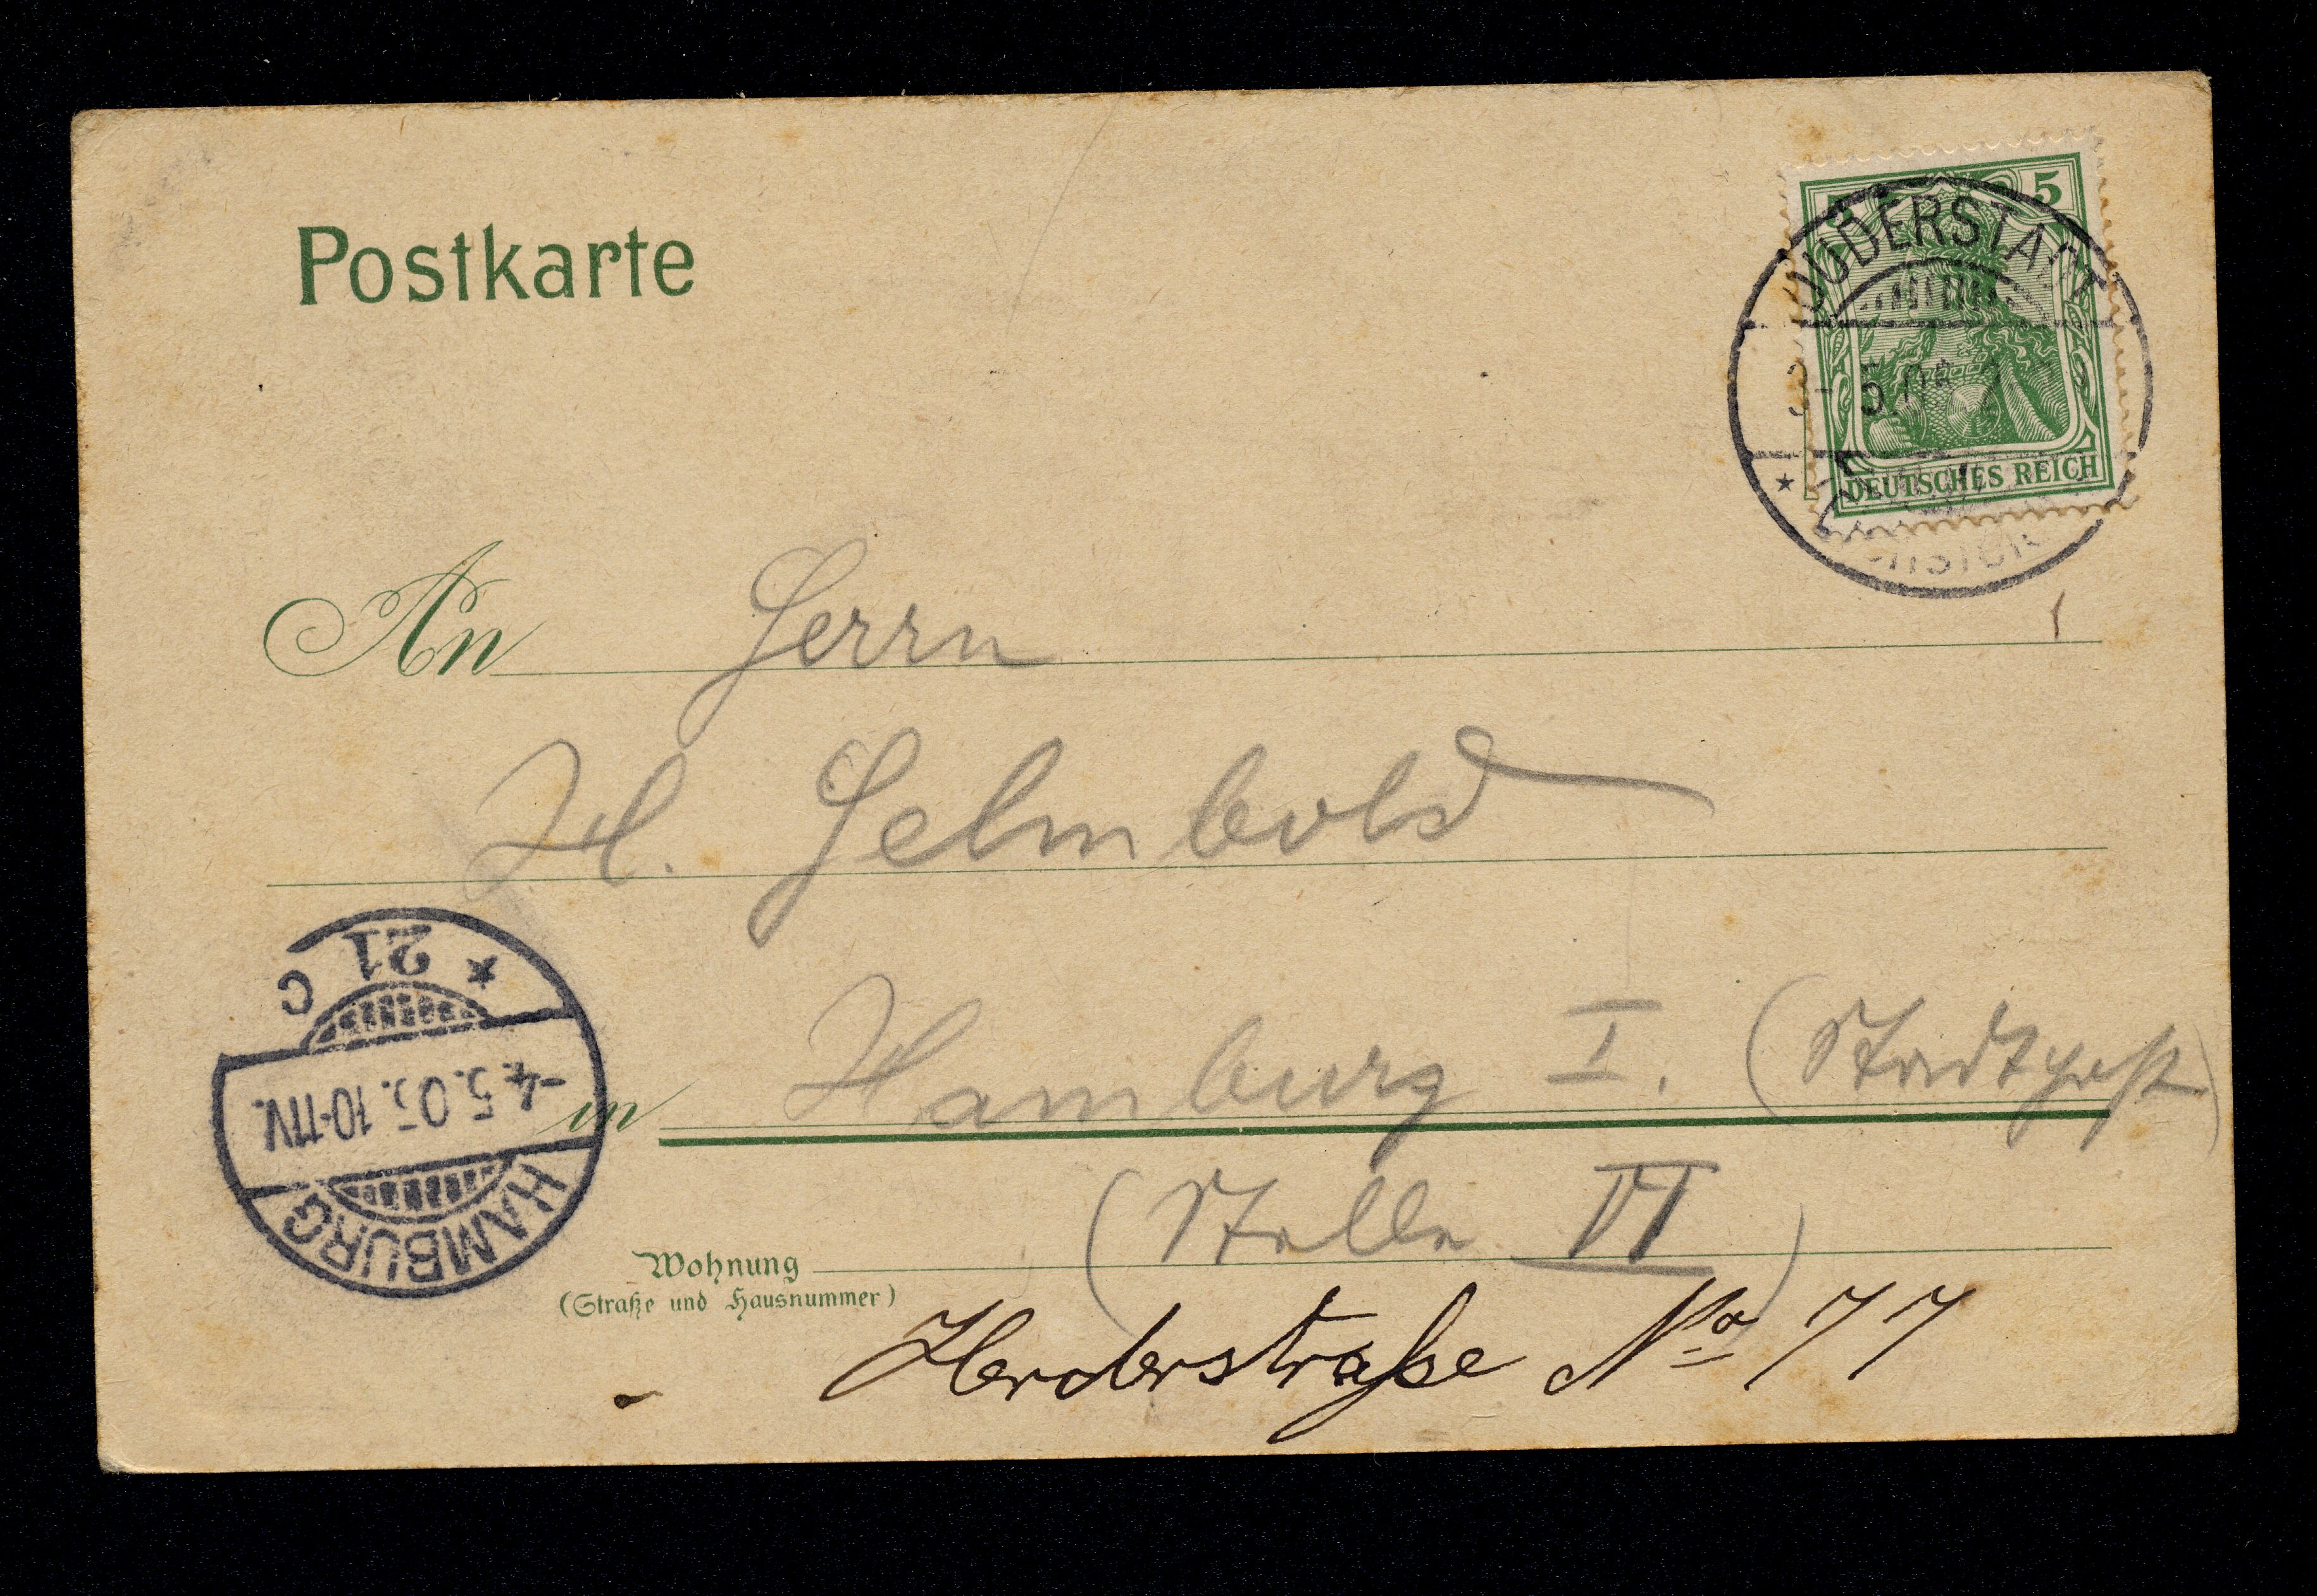 Postkarte
5
DUDERSTADT
3-5.05.
DEUTSCHES REICH
An Herrn
H. Helmbold
in Hamburg I. (Stadtpost
(Stelle VI)
Wohnung
(Straße und Hausnummer)
Herderstraße No 77
* 21 C
-4.5.05.10-11V.
HAMBURG